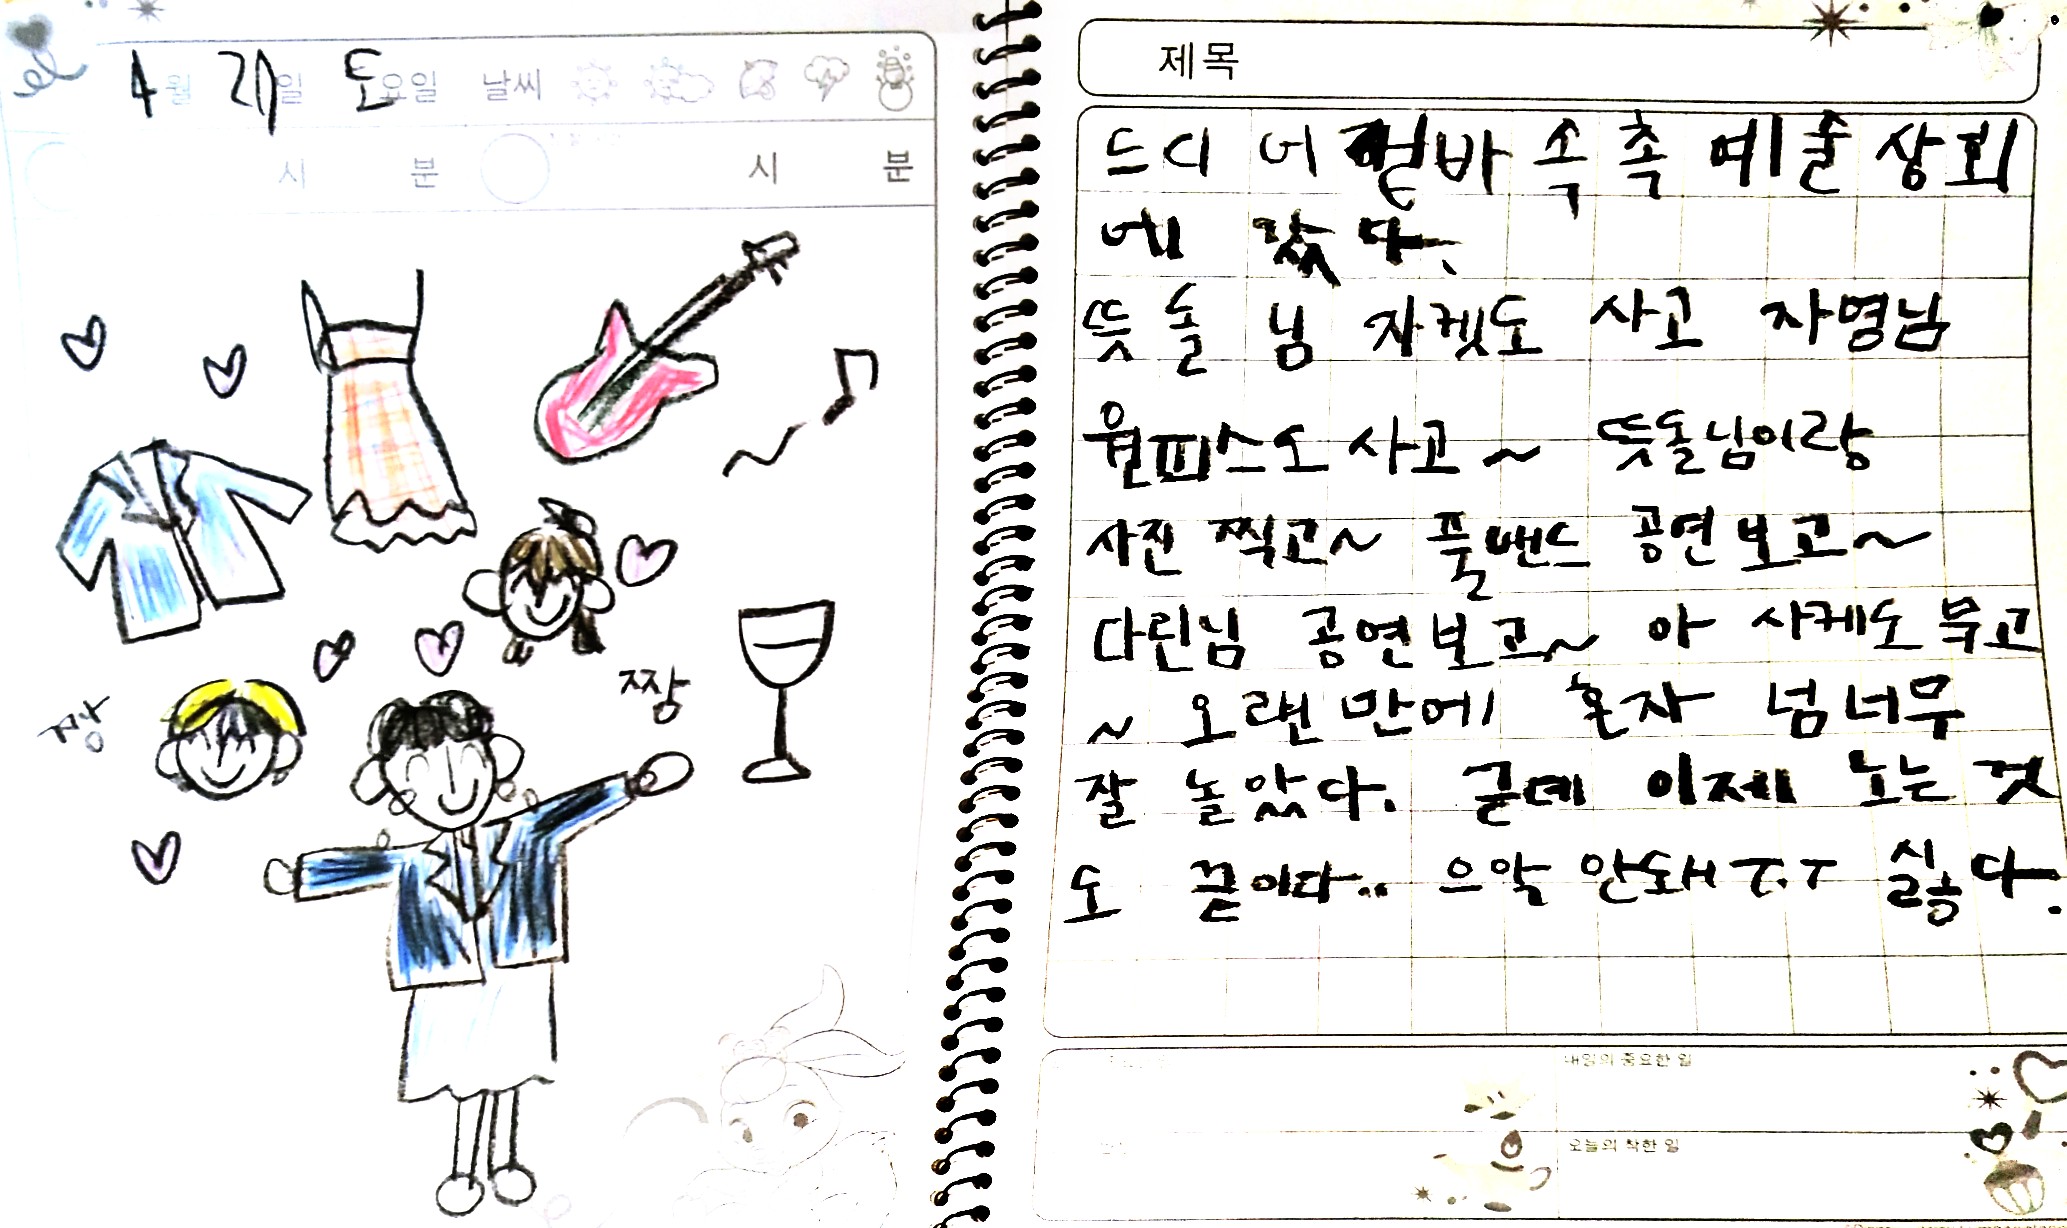 4월 21일 토요일 날씨
시 분 시 분
짱
짱
제목
드디어 텀바 속촉 예술상회
에 갔다.
뜻돌님 자켓도 사고 자영님
원피스도 사고~ 뜻돌님이랑
사진 찍고~ 풀밴드 공연보고~
다린님 공연보고~ 아 사케도 묵고
~ 오랜만에 혼자 넘너무
잘 놀았다. 귿데 이제 노는 것
도 끝이다.. 으악 안돼 T.T 싫다.
내일의 중요한 일
오늘의 착한 일